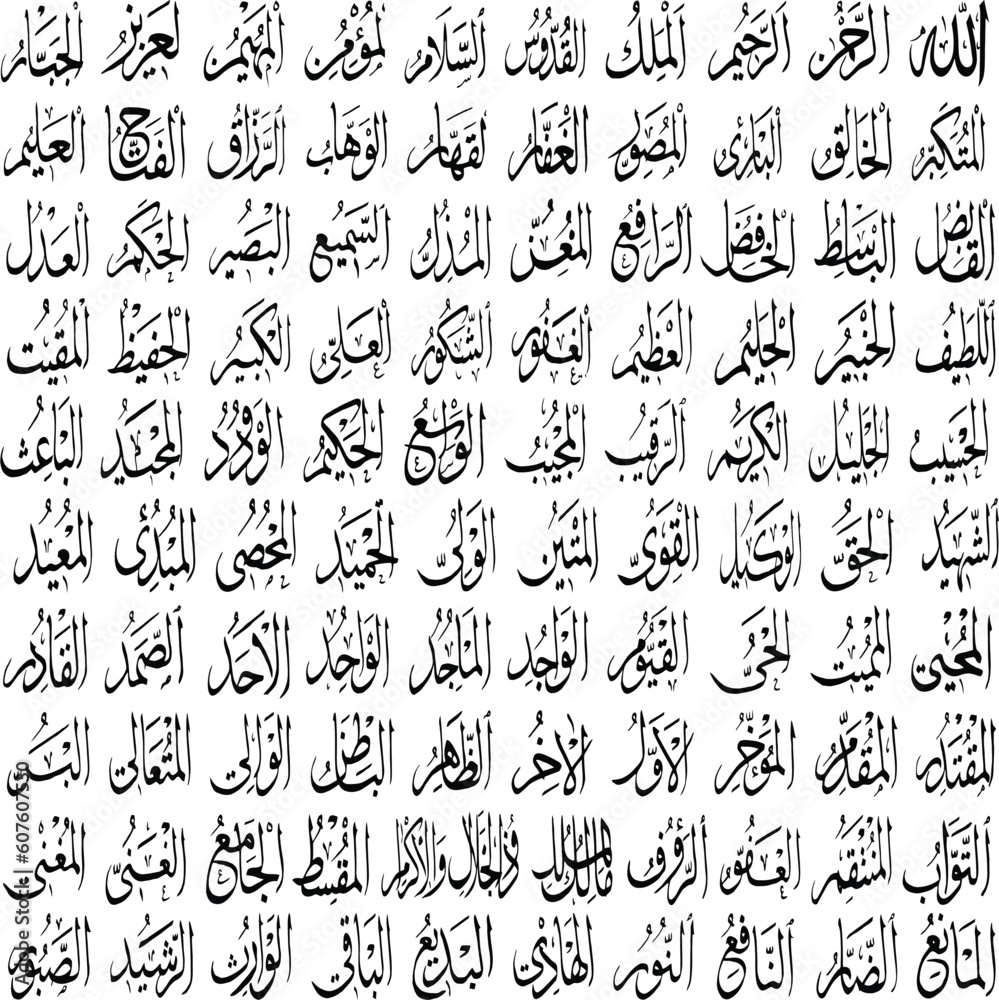 الله الرَّحْمٰن الرَّحِيمُ المَلِكُ القُدُّوسُ السَّلَامُ المُؤْمِنُ المُهَيْمِنُ العَزِيزُ الجَبَّارُ
المُتَكَبِّرُ الخَالِقُ البَارِئُ المُصَوِّرُ الغَفَّارُ القَهَّارُ الوَهَّابُ الرَّزَّاقُ الفَتَّاحُ العَلِيمُ
القَابِضُ البَاسِطُ الخَافِضُ الرَّافِعُ المُعِزُّ المُذِلُّ السَّمِيعُ البَصِيرُ الحَكَمُ العَدْلُ
اللَّطِيفُ الخَبِيرُ الحَلِيمُ العَظِيمُ الغَفُورُ الشَّكُورُ العَلِيُّ الكَبِيرُ الحَفِيظُ المُقِيتُ
الحَسِيبُ الجَلِيلُ الكَرِيمُ الرَّقِيبُ المُجِيبُ الوَاسِعُ الحَكِيمُ الوَدُودُ المَجِيدُ البَاعِثُ
الشَّهِيدُ الحَقُّ الوَكِيلُ القَوِيُّ المَتِينُ الوَلِيُّ الحَمِيدُ المُحْصِي المُبْدِئُ المُعِيدُ
المُحْيِي المُمِيتُ الحَيُّ القَيُّومُ الوَاجِدُ المَاجِدُ الوَاحِدُ الأَحَدُ الصَّمَدُ القَادِرُ
المُقْتَدِرُ المُقَدِّمُ المُؤَخِّرُ الأَوَّلُ الآخِرُ الظَّاهِرُ البَاطِنُ الوَالِي المُتَعَالِي البَرُّ
التَّوَّابُ المُنْتَقِمُ العَفُوُّ الرَّؤُوفُ مَالِكُ المُلْكِ ذُو الجَلَالِ وَالإِكْرَامِ المُقْسِطُ الجَامِعُ الغَنِيُّ المُغْنِي
المَانِعُ الضَّارُّ النَّافِعُ النُّورُ الهَادِي البَدِيعُ البَاقِي الوَارِثُ الرَّشِيدُ الصَّبُورُ
Adobe Stock | #607607530